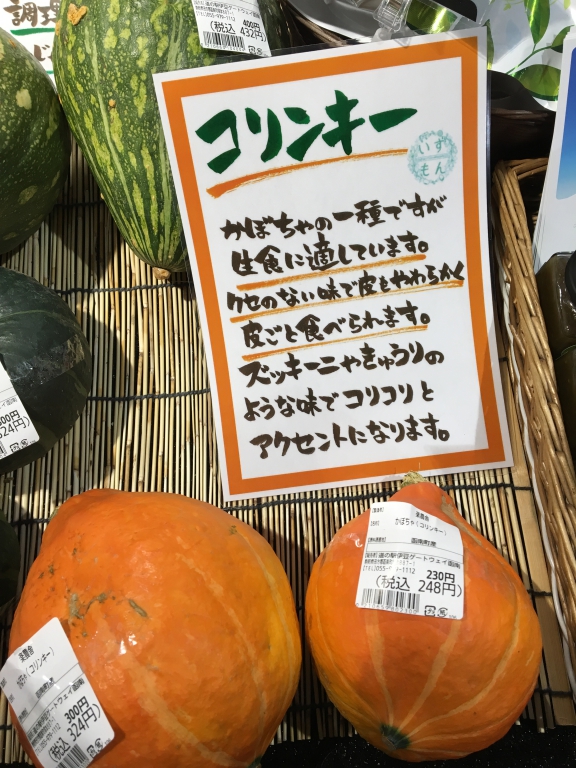 調理
400円
(税込 432円)
コリンキー
いず
もん
かぼちゃの一種ですが
生食に適しています。
クセのない味で皮もやわらかく
皮ごと食べられます。
ズッキーニやきゅうりの
ような味でコリコリと
アクセントになります。
300円
324円)
かぼちゃ(コリンキー)
函南町産
道の駅伊豆ゲートウェイ函南
230円
(税込) 248円)
(コリンキー)
300円
(税込 324円)